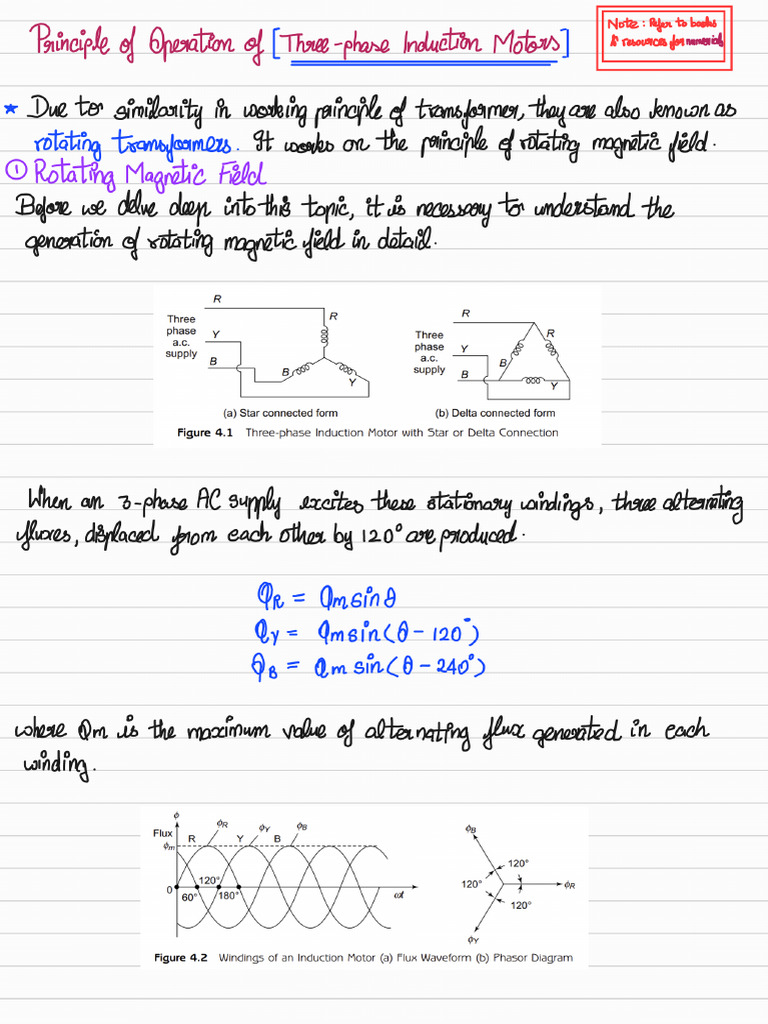 Principle of Operation of [Three-phase Induction Motors]
Note: Refer to books
& resources for numericals
★ Due to similarity in working principle of transformer, they are also known as
rotating transformers. It works on the principle of rotating magnetic field.
① Rotating Magnetic Field
Before we delve deep into this topic, it is necessary to understand the
generation of rotating magnetic field in detail.
R
R
Three
phase
a.c.
supply
Y
B
B
Y
(a) Star connected form
R
R
Three
phase
a.c.
supply
Y
B
B
Y
(b) Delta connected form
Figure 4.1 Three-phase Induction Motor with Star or Delta Connection
When an 3-phase AC supply excites these stationary windings, three alternating
fluxes, displaced from each other by 120° are produced.
φR = φm sinθ
φY = φm sin(θ - 120°)
φB = φm sin(θ - 240°)
where φm is the maximum value of alternating flux generated in each
winding.
φ
Flux
φm
R
φR
Y
φY
B
φB
0
60°
120°
180°
ωt
φB
120°
120°
φR
120°
φY
Figure 4.2 Windings of an Induction Motor (a) Flux Waveform (b) Phasor Diagram